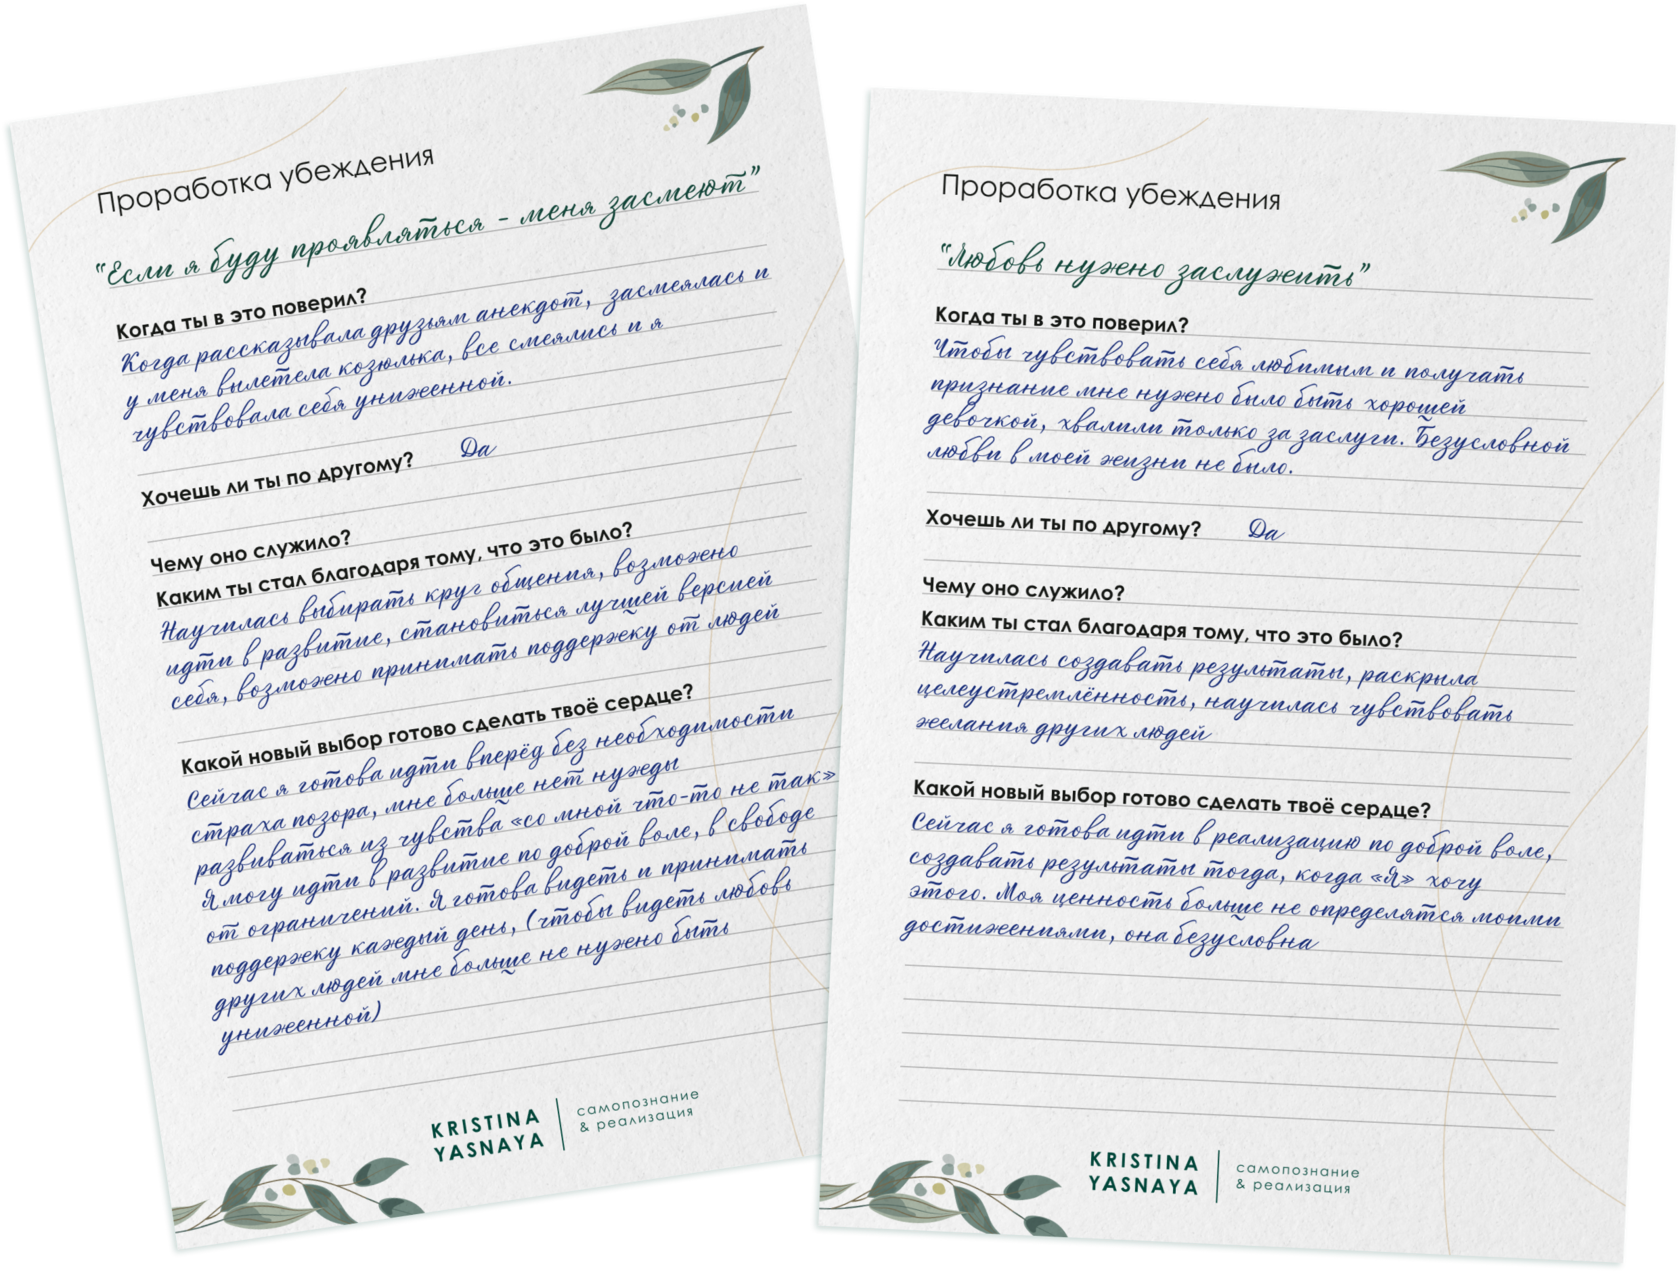 Проработка убеждения
“Если я буду проявляться - меня засмеют”
Когда ты в это поверил?
Когда рассказывала друзьям анекдот, засмеялась и
у меня вылетела козюлька, все смеялись и я
чувствовала себя униженной.
Хочешь ли ты по другому? Да
Чему оно служило?
Каким ты стал благодаря тому, что это было?
Научилась выбирать круг общения, возможно
идти в развитие, становиться лучшей версией
себя, возможно принимать поддержку от людей
Какой новый выбор готово сделать твоё сердце?
Сейчас я готова идти вперёд без необходимости
страха позора, мне больше нет нужды
развиваться из чувства «со мной что-то не так»
Я могу идти в развитие по доброй воле, в свободе
от ограничений. Я готова видеть и принимать
поддержку каждый день, (чтобы видеть любовь
других людей мне больше не нужно быть
униженной)
KRISTINA
YASNAYA
самопознание
& реализация
Проработка убеждения
“Любовь нужно заслужить”
Когда ты в это поверил?
Чтобы чувствовать себя любимым и получать
признание мне нужно было быть хорошей
девочкой, хвалили только за заслуги. Безусловной
любви в моей жизни не было.
Хочешь ли ты по другому? Да
Чему оно служило?
Каким ты стал благодаря тому, что это было?
Научилась создавать результаты, раскрыла
целеустремлённость, научилась чувствовать
желания других людей
Какой новый выбор готово сделать твоё сердце?
Сейчас я готова идти в реализацию по доброй воле,
создавать результаты тогда, когда «Я» хочу
этого. Моя ценность больше не определятся моими
достижениями, она безусловна
KRISTINA
YASNAYA
самопознание
& реализация